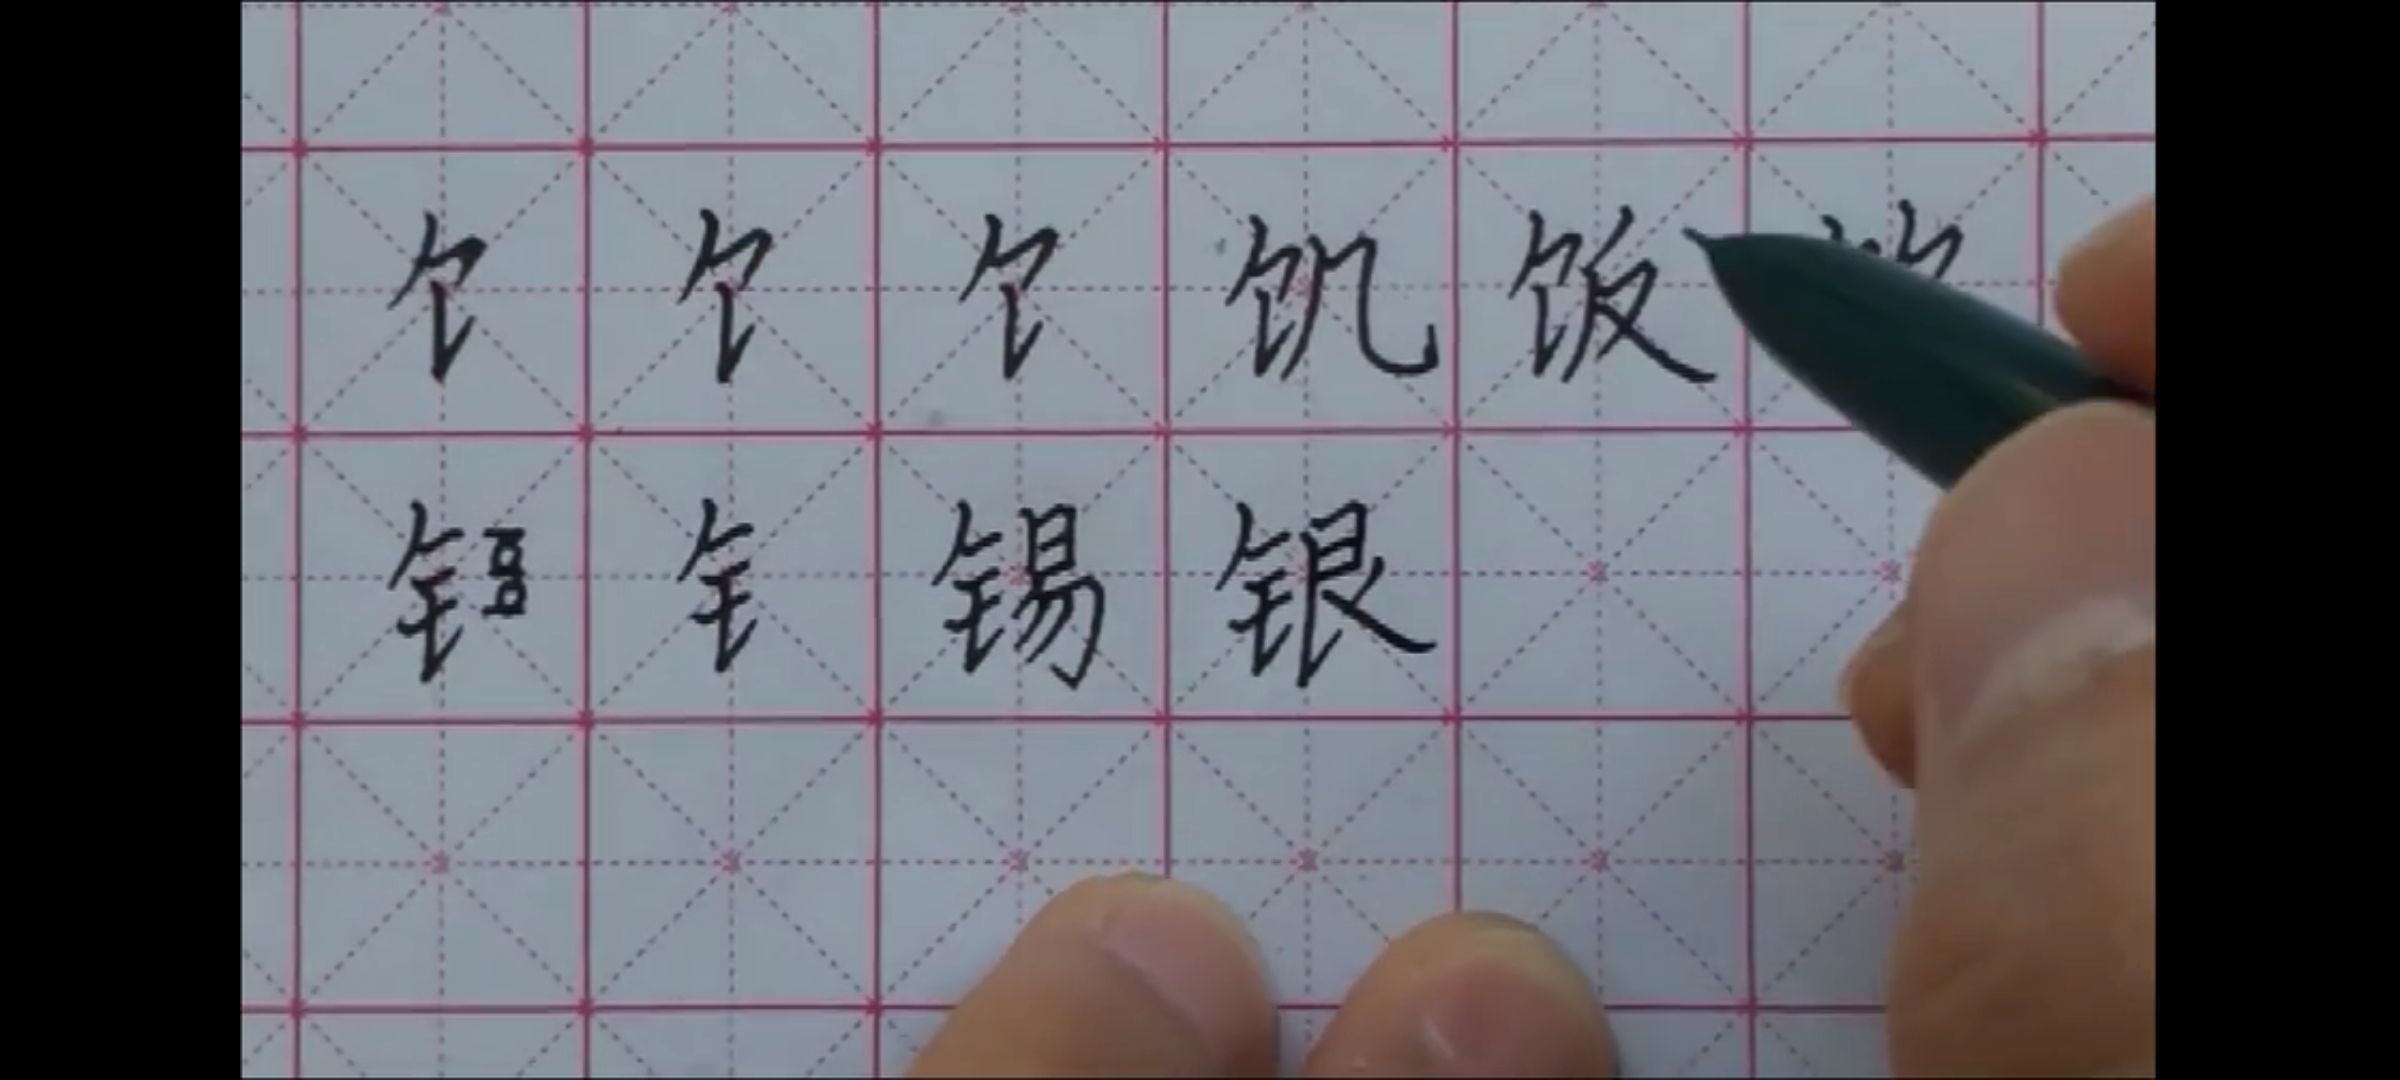 饣饣饣饥饭
钅钅锡银